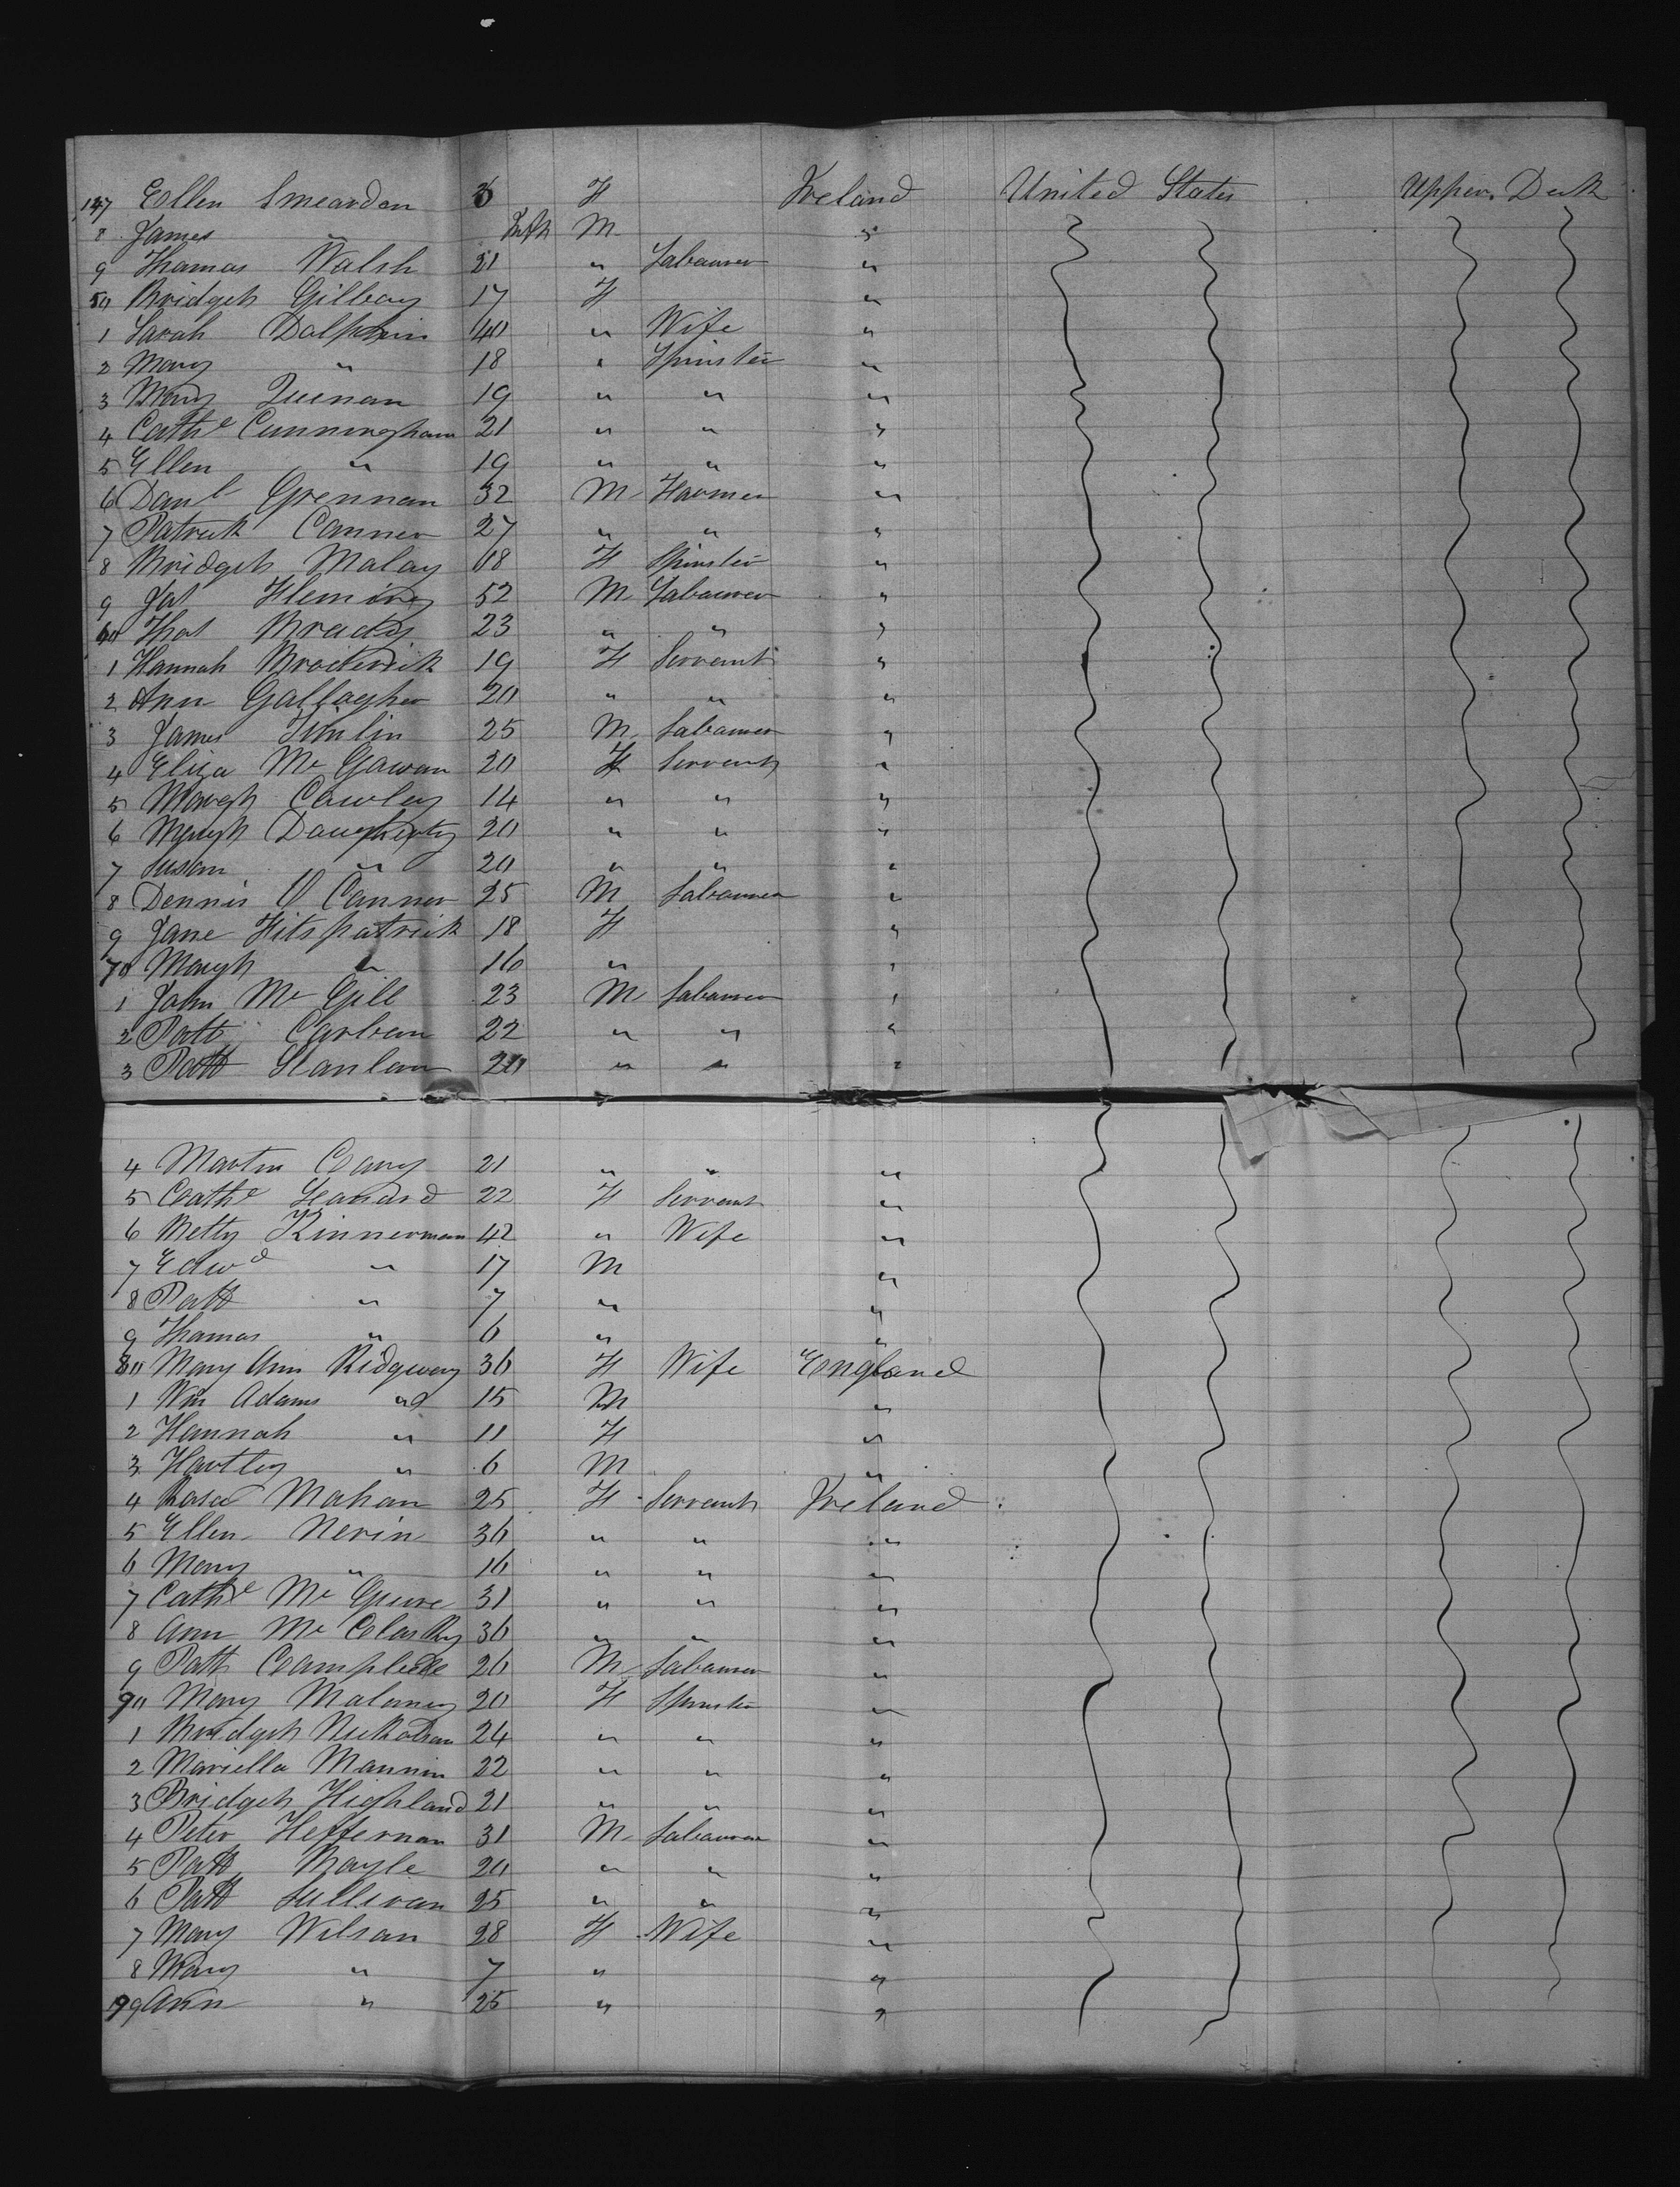 147 Ellen Smeardon 3 F Ireland United States Upper Deck
8 James " Inft M "
9 Thomas Walsh 21 " Labourer "
50 Bridget Gilboy 17 F "
1 Sarah Dolphin 40 " Wife "
2 Mary " 18 " Spinster "
3 Mary Quinan 19 " " "
4 Cathe Cunningham 21 " " "
5 Ellen " 19 " " "
6 Danl Grennan 32 M Farmer "
7 Patrick Conner 27 " " "
8 Bridget Malay 18 F Spinster "
9 Jas Fleming 52 M Labourer "
60 Thos Brady 23 " " "
1 Hannah Broderick 19 F Servant "
2 Ann Gallagher 20 " " "
3 James Timlin 25 M Labourer "
4 Eliza Mc Gowan 20 F Servant "
5 Margt Cawley 14 " " "
6 Margt Daugherty 20 " " "
7 Susan " 20 " " "
8 Dennis O Conner 25 M Labourer "
9 Jane Fitspatrick 18 F "
70 Margt " 16 " "
1 John Mc Gill 23 M Labourer "
2 Patt Carban 22 " " "
3 Patt Hanlan 20 " " "
4 Martin Cary 21 " " "
5 Cathe Leonard 22 F Servant "
6 Betty Kinnerman 42 " Wife "
7 Edwd " 17 M "
8 Patt " 7 " "
9 Thomas " 6 " "
80 Mary Ann Ridgway 36 F Wife England
1 Wm Adams " 15 M "
2 Hannah " 11 F "
3 Hartley " 6 M "
4 Rose Mahan 25 F Servant Ireland
5 Ellen Nevin 36 " " "
6 Mary " 16 " " "
7 Cathe Mc Guire 31 " " "
8 Ann Mc Closky 36 " " "
9 Patt Campbell 26 M Labourer "
90 Mary Malaney 20 F Spinster "
1 Bridget Nickolson 24 " " "
2 Mariella Mannin 22 " " "
3 Bridget Highland 21 " " "
4 Peter Heffernan 31 M Labourer "
5 Patt Boyle 20 " " "
6 Patt Sullivan 25 " " "
7 Mary Wilson 28 F Wife "
8 Mary " 7 " "
99 Ann " 25 " "